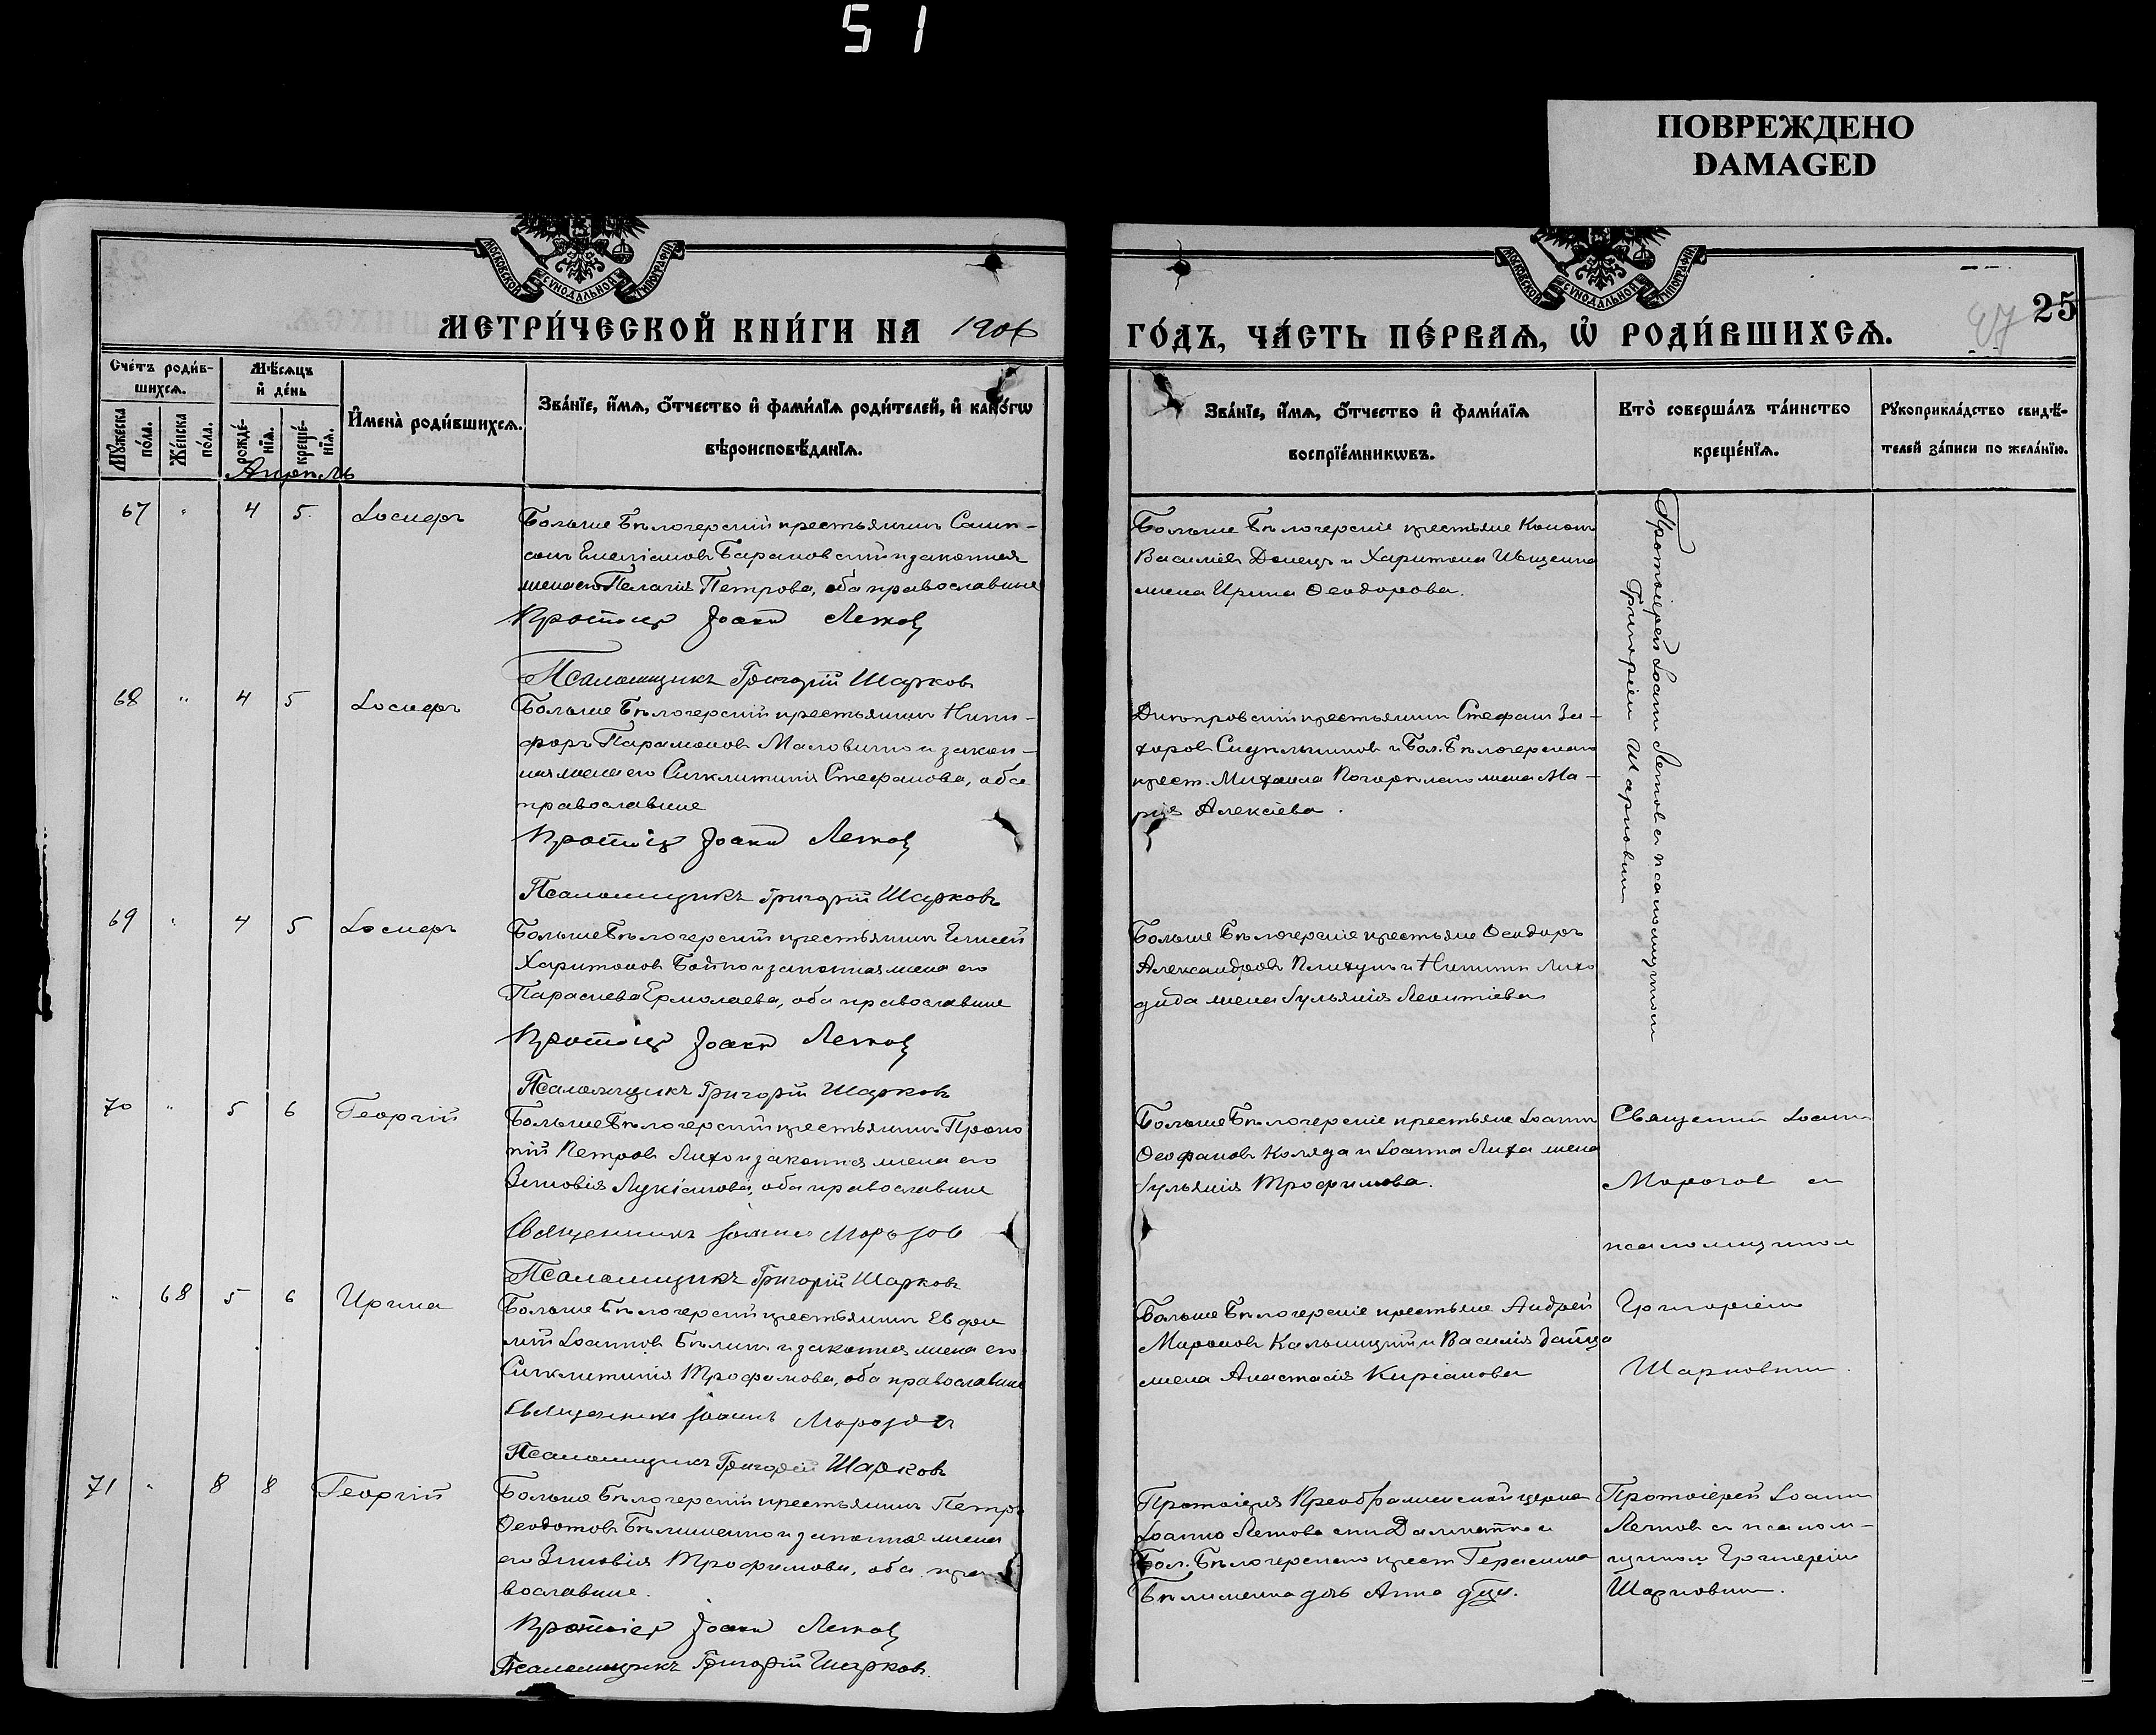 51
ПОВРЕЖДЕНО
DAMAGED
МОСКОВСКОЙ СѴНОДАЛЬНОЙ ТИПОГРАФІИ
МОСКОВСКОЙ СѴНОДАЛЬНОЙ ТИПОГРАФІИ
МЕТРИ́ЧЕСКОЙ КНИ́ГИ НА 1906
ГО́ДЪ, ЧА́СТЬ ПЕ́РВАѦ, Ѡ҆ РОДИ́ВШИХСѦ.
25
Сче́тъ роди́в-
шихсѧ.
Мѣ́сѧцъ
и҆ де́нь
Мꙋ́жеска
по́ла.
Же́нска
по́ла.
рожде́-
нїѧ.
креще́-
нїѧ.
И҆мена̀ роди́вшихсѧ.
Зва́нїе, и҆́мѧ, ѻ҆́тчество и҆ фами́лїѧ роди́телей, и҆ како́гѡ
вѣроисповѣ́данїѧ.
Зва́нїе, и҆́мѧ, ѻ҆́тчество и҆ фами́лїѧ
воспрїе́мникѡвъ.
Кто̀ соверша́лъ та́инство
креще́нїѧ.
Рꙋкоприкла́дство свидѣ́-
телей за́писи по жела́нїю.
Апрѣль
67 " 4 5. Іосифъ
Больше Бѣлозерскій крестьянинъ Самп-
сонъ Емеліановъ Барановскій и законная
жена его Пелагія Петрова, оба православные
Протоіер Іоанн Летков
Псаломщикъ Григорій Шарковъ
Больше Бѣлозерскіе крестьяне Кононъ
Василіевъ Донецъ и Харитона Иващенка
жена Ирина Ѳеодорова.
Протоіерей Іоаннъ Летковъ съ псаломщикомъ
Григоріем Шарковым
68 " 4 5 Іосифъ
Больше Бѣлозерскій крестьянинъ Ники-
форъ Парамоновъ Маловичко и закон-
ная жена его Сигклитикія Стефанова, оба
православные
Протоіер Іоанн Летков
Псаломщикъ Григорій Шарковъ
Днѣпровскій крестьянинъ Стефанъ За-
харовъ Сидѣльниковъ и Бол. Бѣлозерскаго
крест. Михаила Погорѣлаго жена Ма-
рія Алексіева.
69 " 4 5 Іосифъ
Больше Бѣлозерскій крестьянинъ Елисей
Харитоновъ Бойко и законная жена его
Параскева Ермолаева, оба православные
Протоіер Іоанн Летков
Псаломщикъ Григорій Шарковъ
Больше Бѣлозерскіе крестьяне Ѳеодоръ
Александровъ Плихунъ и Никиты Лихо
дида жена Іульянія Леонтіева
70 " 5 6 Георгій
Больше Бѣлозерскій крестьянинъ Проко
пій Петровъ Лихо и законная жена его
Зиновія Лукіанова, оба православные
Священникъ Іоаннъ Морозов
Псаломщикъ Григорій Шарковъ
Больше Бѣлозерскіе крестьяне Іоаннъ
Ѳеофановъ Коляда и Іоанна Лиха жена
Іульянія Трофимова.
Священникъ Іоаннъ
Морозов съ
псаломщиком
Григоріем
Шарковым.
" 68 5 6 Ирина
Больше Бѣлозерскій крестьянинъ Евфи
мій Іоанновъ Бѣликъ и законная жена его
Сигклитикія Трофимова, оба православные
Священникъ Іоаннъ Морозов
Псаломщикъ Григорій Шарковъ
Больше Бѣлозерскіе крестьяне Андрей
Мироновъ Кальницкій и Василія Зайца
жена Анастасія Киріакова
71 " 8 8 Георгій
Больше Бѣлозерскій крестьянинъ Петръ
Ѳеодотовъ Бѣлименко и законная жена
его Зиновія Трофимова, оба пра
вославные.
Протоіер Іоанн Летков
Псаломщикъ Григорій Шарковъ.
Протоіерея Преображенской церкви
Іоанна Леткова и
Бол. Бѣлозерскаго крест Герасима
Бѣлименка дочь Анна дѣца.
Протоіерей Іоаннъ
Летков съ псалом-
щиком Григоріем
Шарковым.